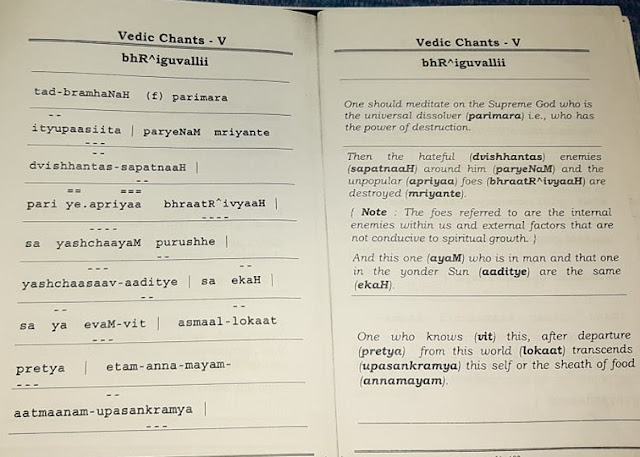 Vedic Chants - V
bhR^iguvallii
tad-bramhaNaH (f) parimara
ityupaasiita | paryeNaM mriyante
dvishhantas-sapatnaaH |
pari ye.apriyaa bhraatR^ivyaaH |
sa yashchaayaM purushhe |
yashchaasaav-aaditye | sa ekaH |
sa ya evaM-vit | asmaal-lokaat
pretya | etam-anna-mayam-
aatmaanam-upasankramya |
Vedic Chants - V
bhR^iguvallii
One should meditate on the Supreme God who is
the universal dissolver (parimara) i.e., who has
the power of destruction.
Then the hateful (dvishhantas) enemies
(sapatnaaH) around him (paryeNaM) and the
unpopular (apriyaa) foes (bhraatR^ivyaaH) are
destroyed (mriyante).
{ Note : The foes referred to are the internal
enemies within us and external factors that are
not conducive to spiritual growth. }
And this one (ayaM) who is in man and that one
in the yonder Sun (aaditye) are the same
(ekaH).
One who knows (vit) this, after departure
(pretya) from this world (lokaat) transcends
(upasankramya) this self or the sheath of food
(annamayam).